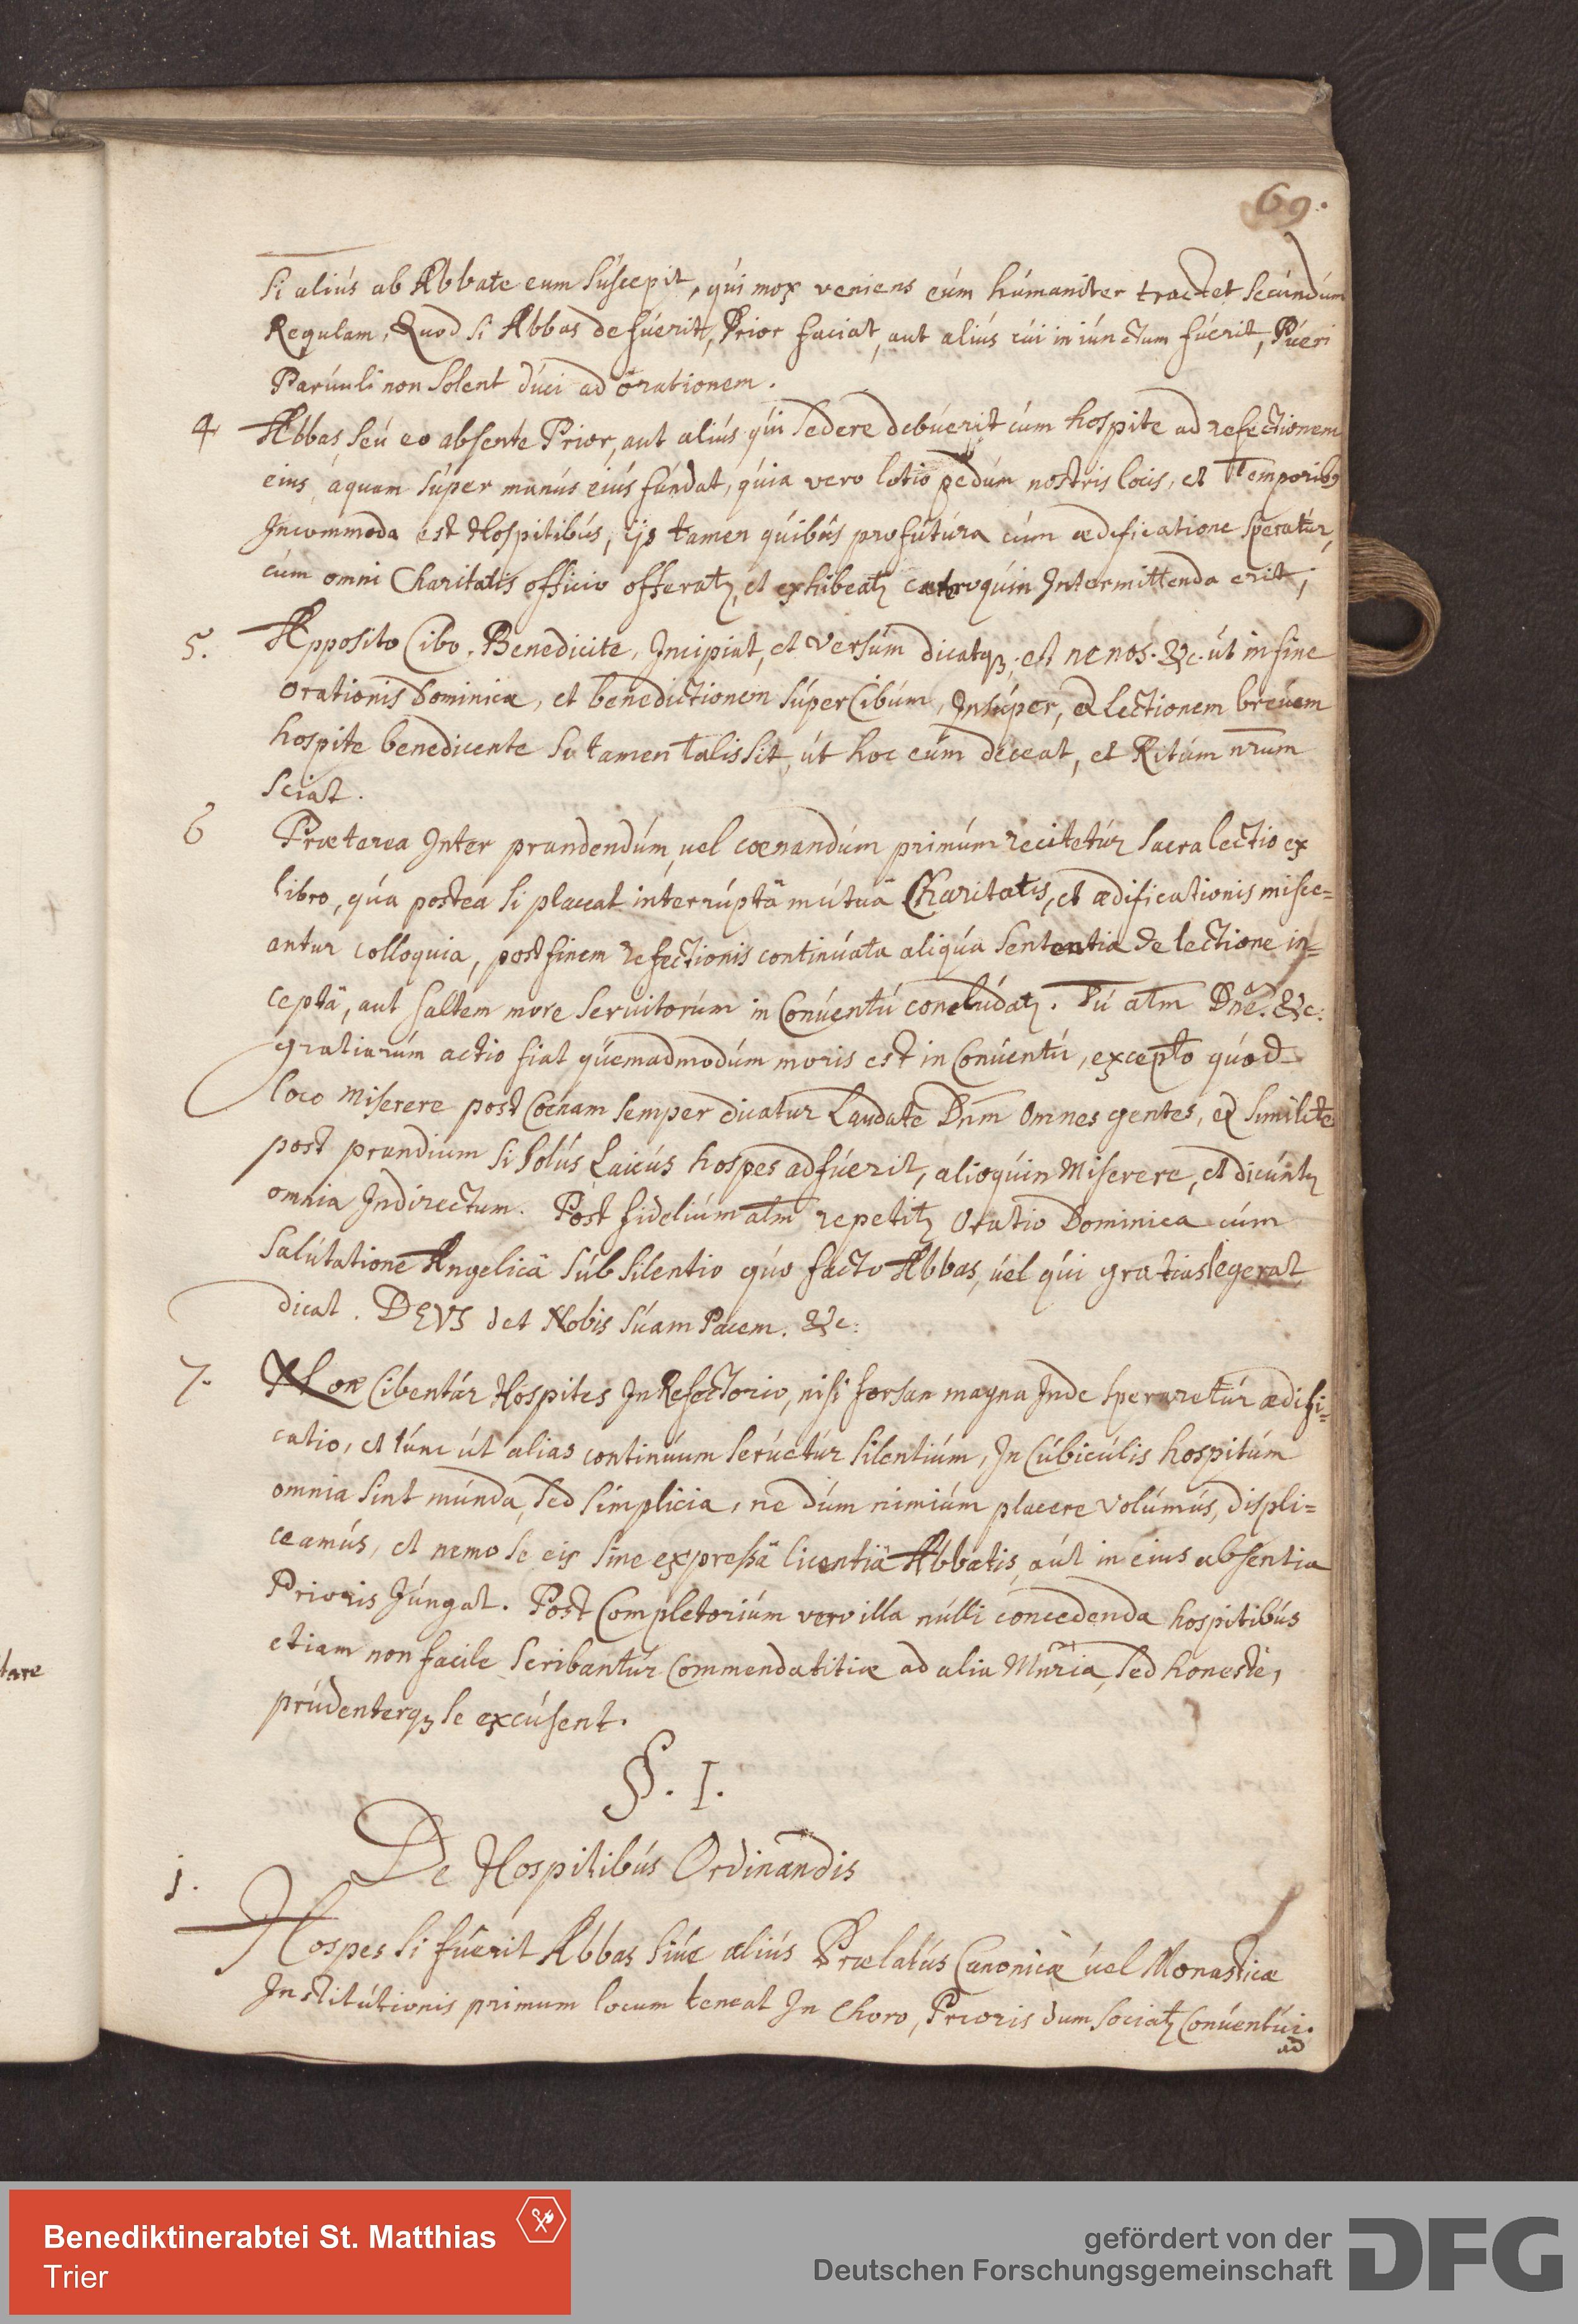 69.
Si aliús ab Abbate eum súscepit, qúi mox veniens eúm húmaniter tractet secúndúm
Regulam, Quod si Abbas defúerit, Prior faciat, aut aliús cúi iniúnctum fúerit, Púeri
Parúuli non solent dúci ad orationem.
4 Abbas, seú eo absente Prior, aut aliús qúi sedere debúerit cúm hospite ad refectionem
eius, aquam súper manús eiús fúndat, qúia vero lotio pedúm nostris locis, et Temporibȝ
Incommoda est Hospitibús, ijs tamen qúibús profútúra cúm ædificatione speratúr,
cúm omni Charitatis officio offeratȝ, et exhibeatȝ cæteroqúin Intermittenda erit;
5. Apposito Cibo, Benedicite, Incipiat, et versúm dicatqȝ. et ne nos. &c. út in fine
orationis Dominicæ, et benedictionem súper Cibúm, Insúper, et lectionem breúem
hospite benedicente si tamen talis sit, út hoc eúm deceat, et Ritúm nrum
sciat.
6 Præterea Inter prandendúm, uel coenandúm primúm recitetúr sacra lectio ex
libro, qúa postea si placeat interrúptâ mútúa Charitatis, et ædificationis misce=
antur colloquia, post finem refectionis continúata aliqúa sententia de lectione in=
ceptâ, aut saltem more seruitorúm in Conúentú conclúdatȝ. Tú atm Dne. &c.
gratiarúm actio fiat qúemadmodúm moris est in Conúentú, excepto qúod
loco Miserere post Coenam semper dicatur Laudate Dnm omnes gentes, et similite
post prandium si solús Laicús hospes adfúerit, alioqúin Miserere, et dicúntȝ
omnia Indirectum. Post fideliúm atm repetitȝ Oratio Dominica cúm
Salútatione Angelicâ súb silentio qúo facto Abbas, úel qúi gratias legerat
dicat. DEVS det Nobis súam Pacem. &c.
7. Non Cibentúr Hospites In Refectorio, nisi forsan magna Inde speraretúr ædifi=
catio, et túnc út alias continúum serúetúr silentiúm, In Cúbicúlis hospitúm
omnia sint múnda, sed simplicia, ne dúm nimiúm placere volúmús, displi=
ceamús, et nemo se eis sine expreßâ licentiâ Abbatis, aút in eius absentia
Prioris Júngat. Post Completoriúm vero illa núlli concedenda hospitibús
etiam non facile scribantúr Commendatitiæ ad alia Mnria, sed honestè,
prúdenterqȝ se excúsent.
§. I.
De Hospitibús Ordinandis
1. Hospes si fúerit Abbas siúe aliús Prælatús Canonicæ úel Monasticæ
Institútionis primum locum teneat In Choro, Prioris dum sociatȝ Conúentúi.
ad
tare
Benediktinerabtei St. Matthias
Trier
gefördert von der
Deutschen Forschungsgemeinschaft
DFG